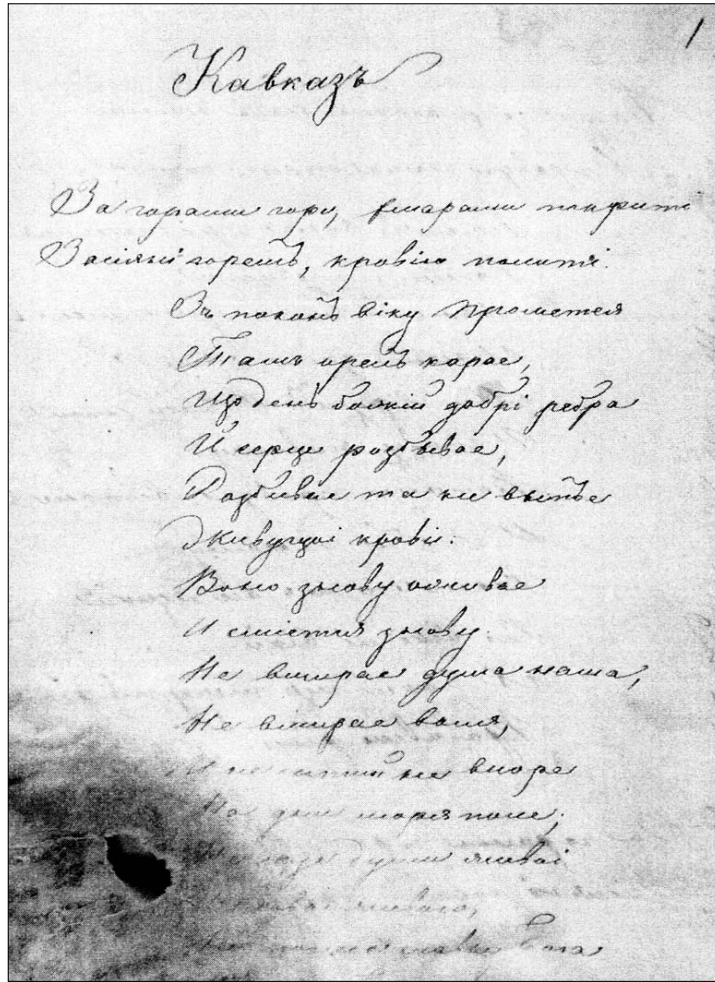 1
Кавказъ
За горами гори, хмарами покриті
Засіяні горемъ, кровію политі.
Зъ поконъ віку Прометея
Тамъ орелъ карае,
Що день божій добрі ребра
И серце розбывае,
Розбивае та не выпъе
Живущоі кровіи.
Воно знову оживае
И сміетця знову.
Не вмирае душа наша,
Не вмирае воля,
И неситий не виоре
На дни моря поле;
души живоі
живого,
слави Бога